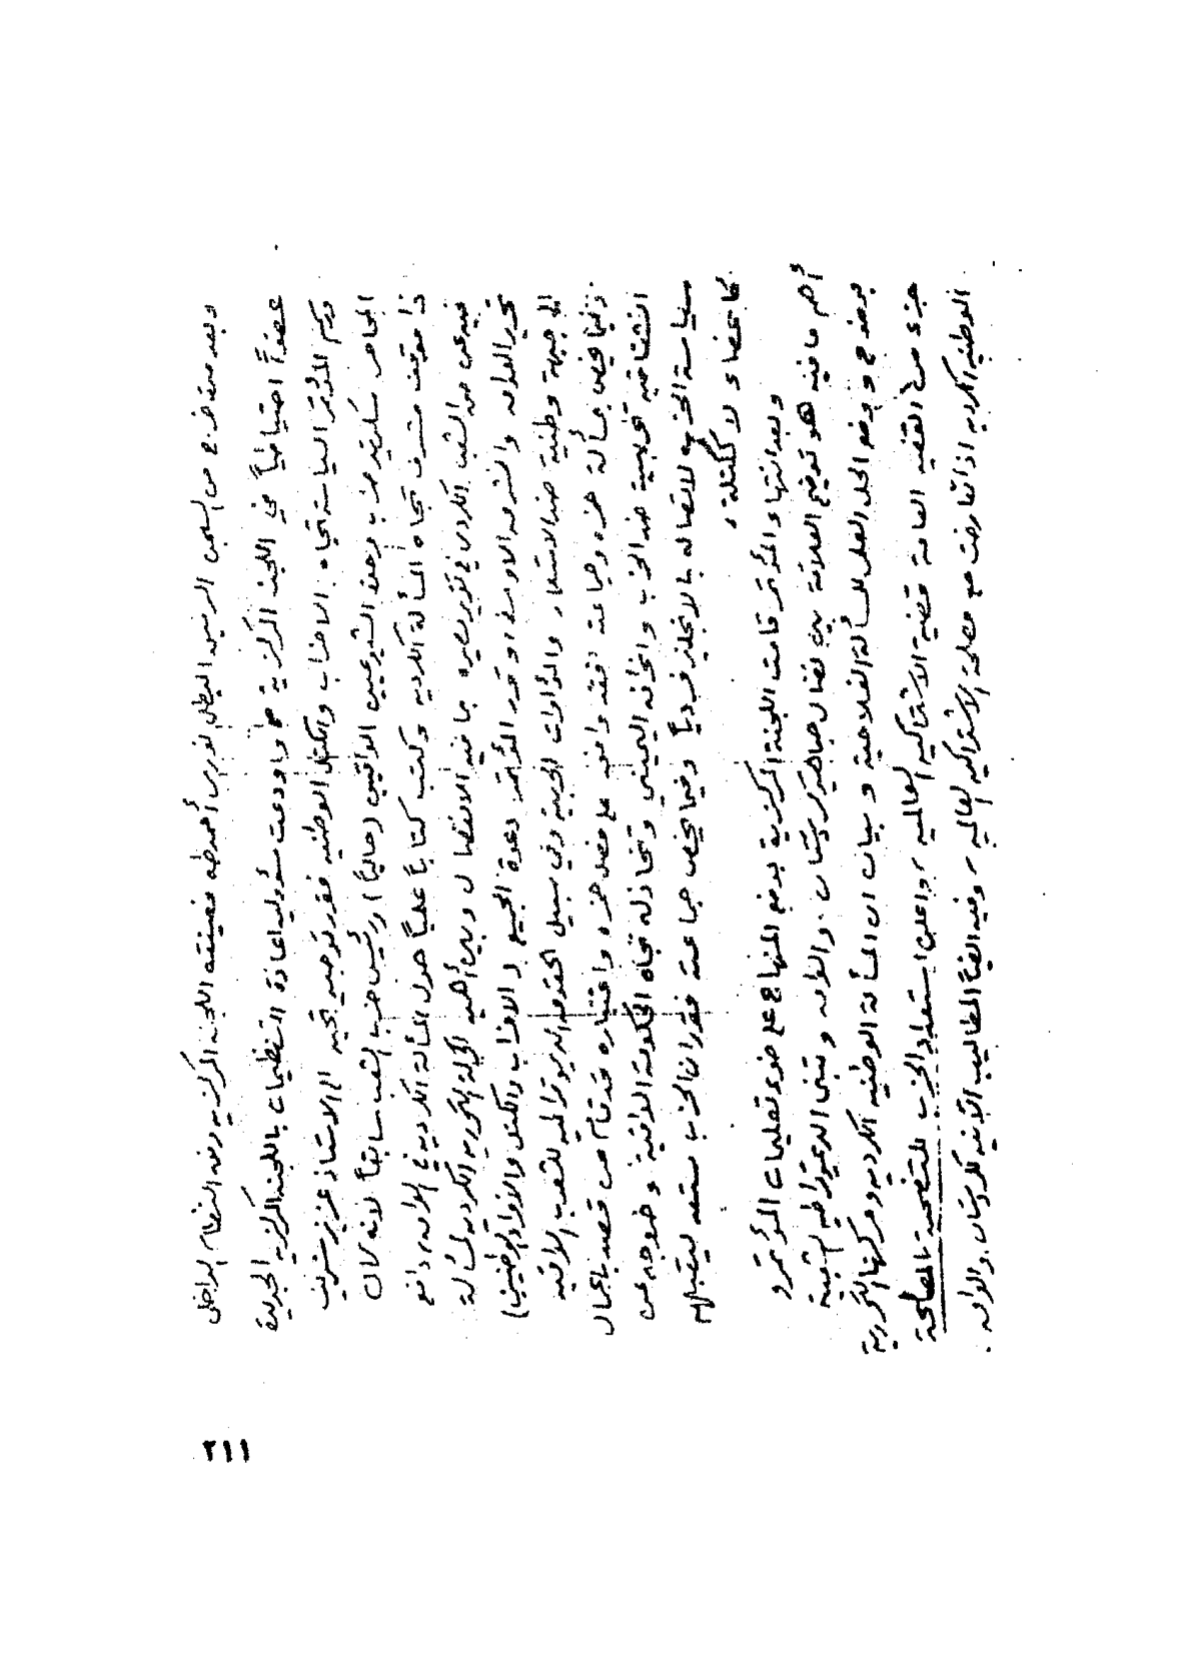 وبعد مدة خرج من السجن الرئيس البطل نوري أحمد طه فعينته اللجنة المركزية وفق النظام الداخلي
عضواً احتياطياً في اللجنة المركزية واودعت مسؤولية اعادة التنظيمات باللجنة المركزية الجديدة
ورسم المؤتمر السياسة تجاه الاحزاب والكتل الوطنية فقرر توجيه تحية الى الاستاذ عزيز شريف
المجاهر سكرتير حزب وحدة الشيوعيين العراقيين (حالياً) رئيس حزب الشعب سابقاً لانه كان
ذا موقف مشرف تجاه المسألة الكردية وكتب كتاباً علمياً حول المسألة الكردية في العراق، دافع
فيه عن حق الشعب الكردي في تقرير مصيره بما فيه الانفصال وبين أهمية الحركة التحررية الكردية لمسألة
تحرير العراق والشرق الاوسط وقرر المؤتمر دعوة الجميع (الاحزاب والكتل والأفراد الوطنيين)
الى جبهة وطنية ضد الاستعمار والمؤامرات الحربية وفي سبيل الحقوق الديموقراطية للشعب العراقي
وفيما يخص بمسألة حمزه وجماعته فقد وافق على فصل حمزه واعتباره قد قام عن قصد باعمال
انشقاقية تخريبية ضد الحزب وانحرافه اليميني وتخاذله تجاه الحكومة العراقية وخروجه عن
سياسة الحزب لاتصاله بالانجليز فردياً وفيما يخص جماعته فقرر ان الحزب مستعد ليتقبلهم
كأعضاء لا ككتلة،
وبعد انتهاء المؤتمر قامت اللجنة المركزية بوضع المنهاج على ضوء تعليمات المؤتمر و
أهم ما فيه هو توضيح العلاقة بين نضال جماهير كردستان والعراق وتبنى الديمقراطية الشعبية
بوضوح و وضع الحل العملي للمسألة الفلاحية وبيان ان المسألة الوطنية الكردية وحركتها التحررية
جزء من القضية العامة قضية الاشتراكية العالمية، واعلن استعداد الحزب للتضحية بالمصلحة
الوطنية الكردية اذا تعارضت مع مصلحة الاشتراكية العالمية، وفيه ايضاً المطاليب الآنية لكردستان والعراق.
٢١١